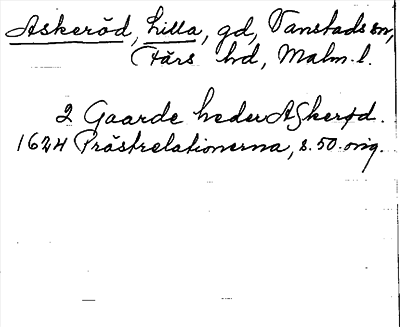 Askeröd, Lilla, gd, Vanstads sn,
Färs hd, Malm. l.
2 Gaarde heder Askerød.
1624 Prästrelationerna, s. 50. orig.